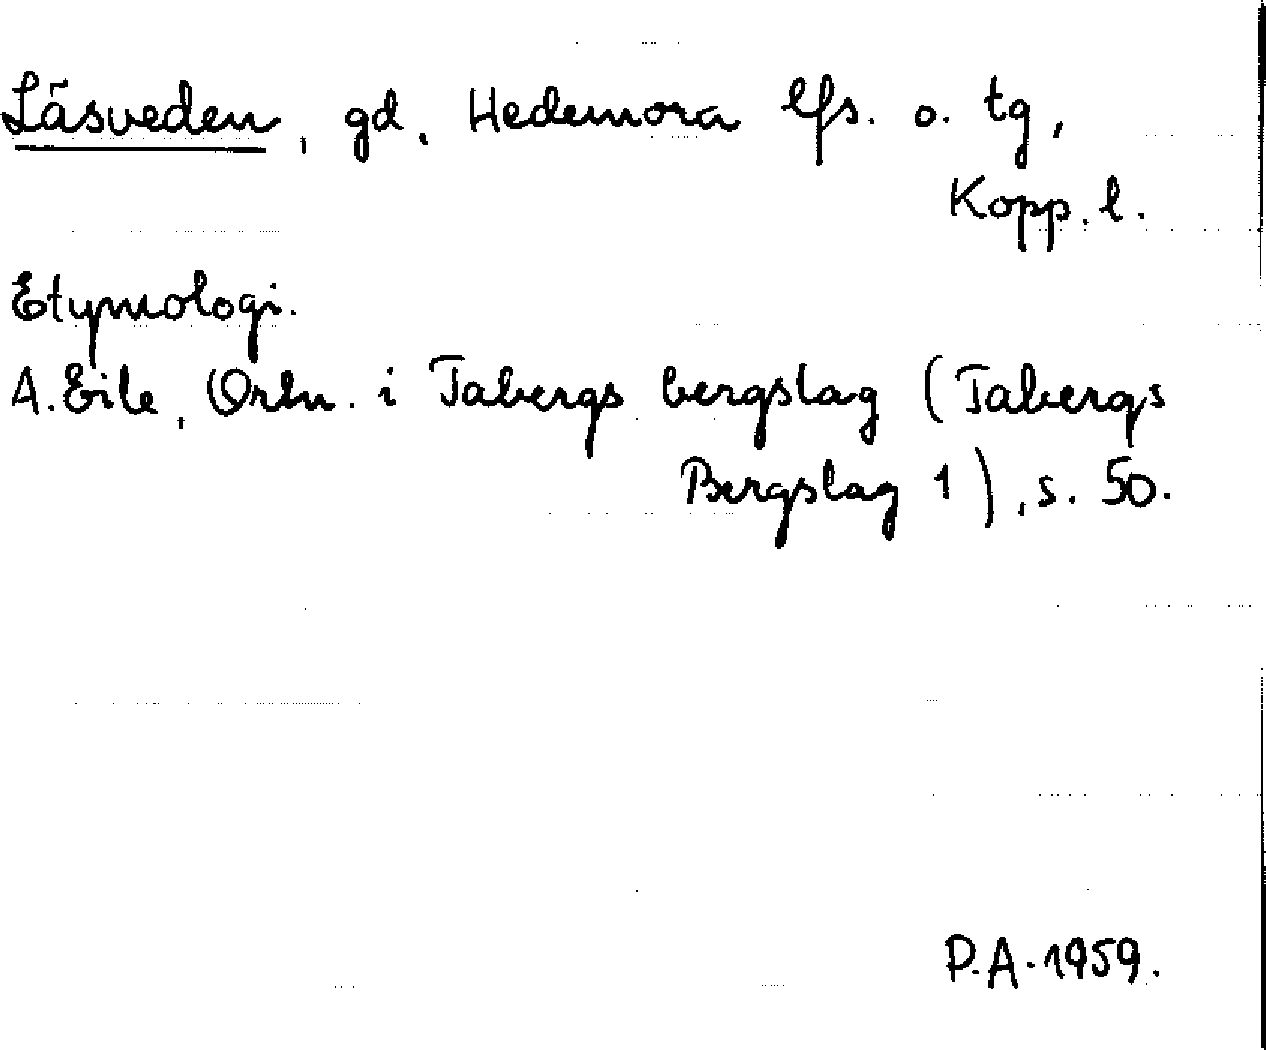 Läsveden, gd, Hedemora lfs. o. tg,
Kopp. l.
Etymologi.
A. Eile, Ortn. i Tabergs bergslag (Tabergs
Bergslag 1), s. 50.
P.A. 1959.